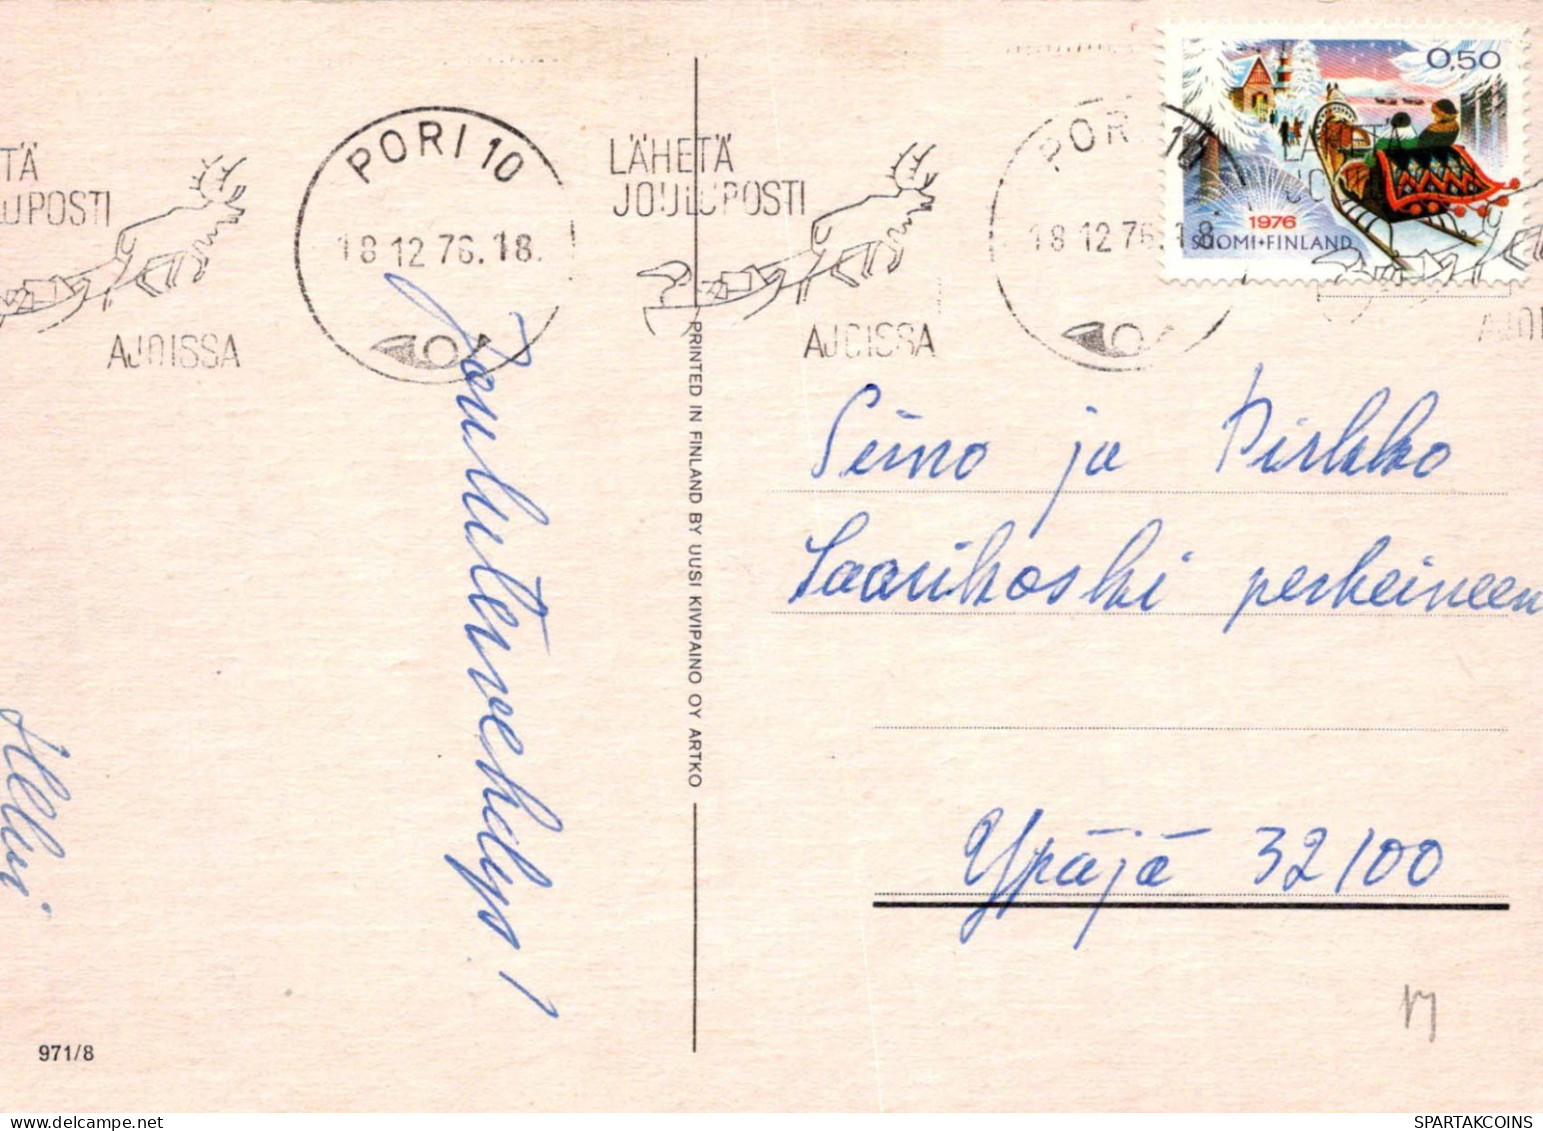 TÄ
LUPOSTI
AJOISSA
PORI 10
18.12.76.18.
LÄHETÄ
JOULUPOSTI
AJOISSA
PORI 10
18.12.76.18.
0,50
1976
SUOMI+FINLAND
LÄ
JO
AJOI
Joulutervehdys!
PRINTED IN FINLAND BY UUSI KIVIPAINO OY ARTKO
Seino ja Pirkko
Saarikoski perheineen
Ypäjä 32100
971/8
SPARTAKCOINS